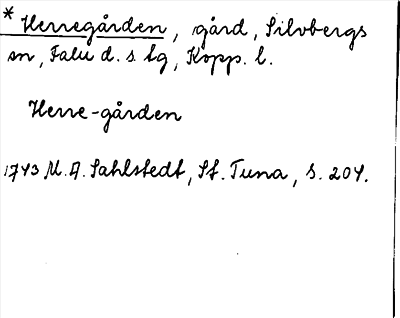 * Herregården, gård, Silvbergs
sn, Falu d. s. lg, Kopp. l.
Herre-gården
1743 M. A. Sahlstedt, St. Tuna, s. 204.